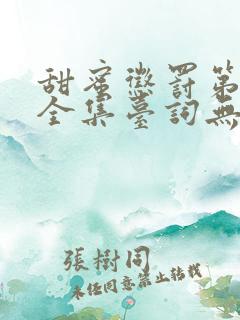 甜蜜懲罰第
全集臺詞無
張樹同
未经同意禁止转载